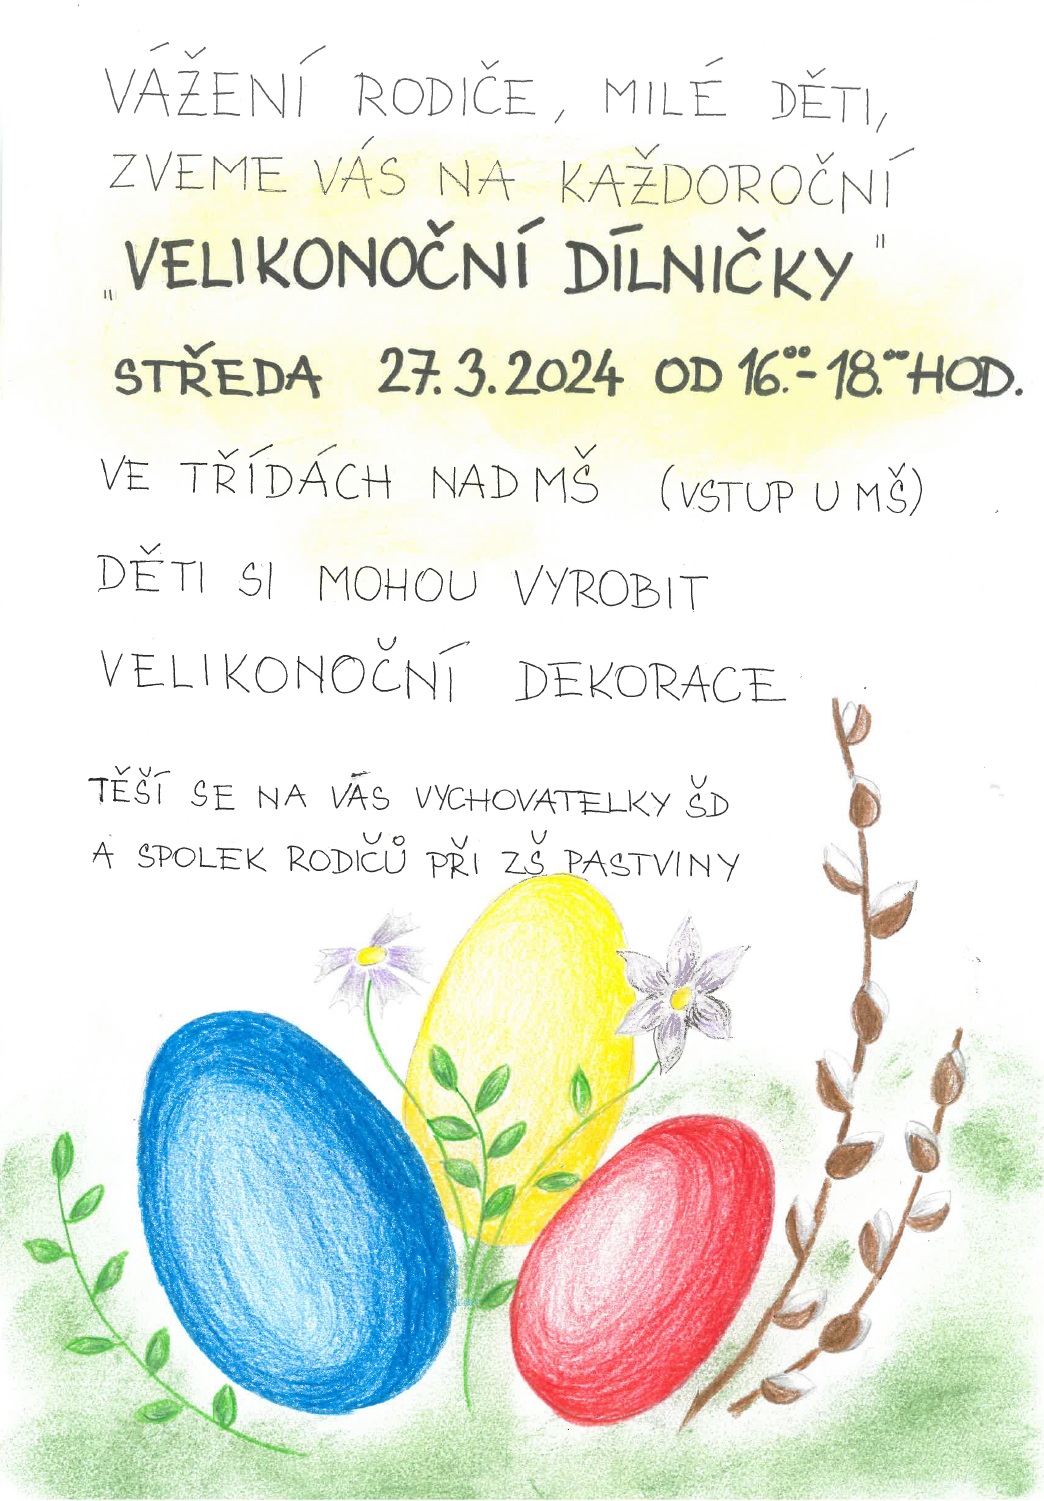 VÁŽENÍ RODIČE, MILÉ DĚTI,
ZVEME VÁS NA KAŽDOROČNÍ
"VELIKONOČNÍ DÍLNIČKY"
STŘEDA 27.3.2024 OD 16.00-18.00 HOD.
VE TŘÍDÁCH NAD MŠ (VSTUP U MŠ)
DĚTI SI MOHOU VYROBIT
VELIKONOČNÍ DEKORACE
TĚŠÍ SE NA VÁS VYCHOVATELKY ŠD
A SPOLEK RODIČŮ PŘI ZŠ PASTVINY